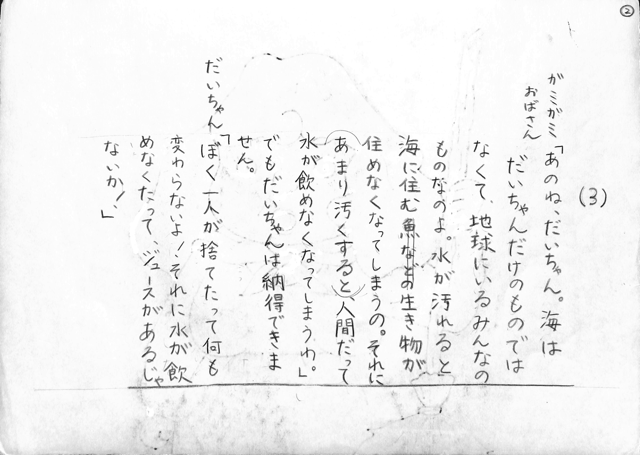 ②
(3)
ガミガミ
おばさん
「あのね、だいちゃん。海は
だいちゃんだけのものでは
なくて、地球にいるみんなの
ものなのよ。水が汚れると
海に住む魚などの生き物が
住めなくなってしまうの。それに
あまり汚くすると、人間だって
水が飲めなくなってしまうわ。」
でもだいちゃんは納得できま
せん。
だいちゃん「ぼく一人が捨てたって何も
変わらないよ!それに水が飲
めなくたって、ジュースがあるじゃ
ないか!」